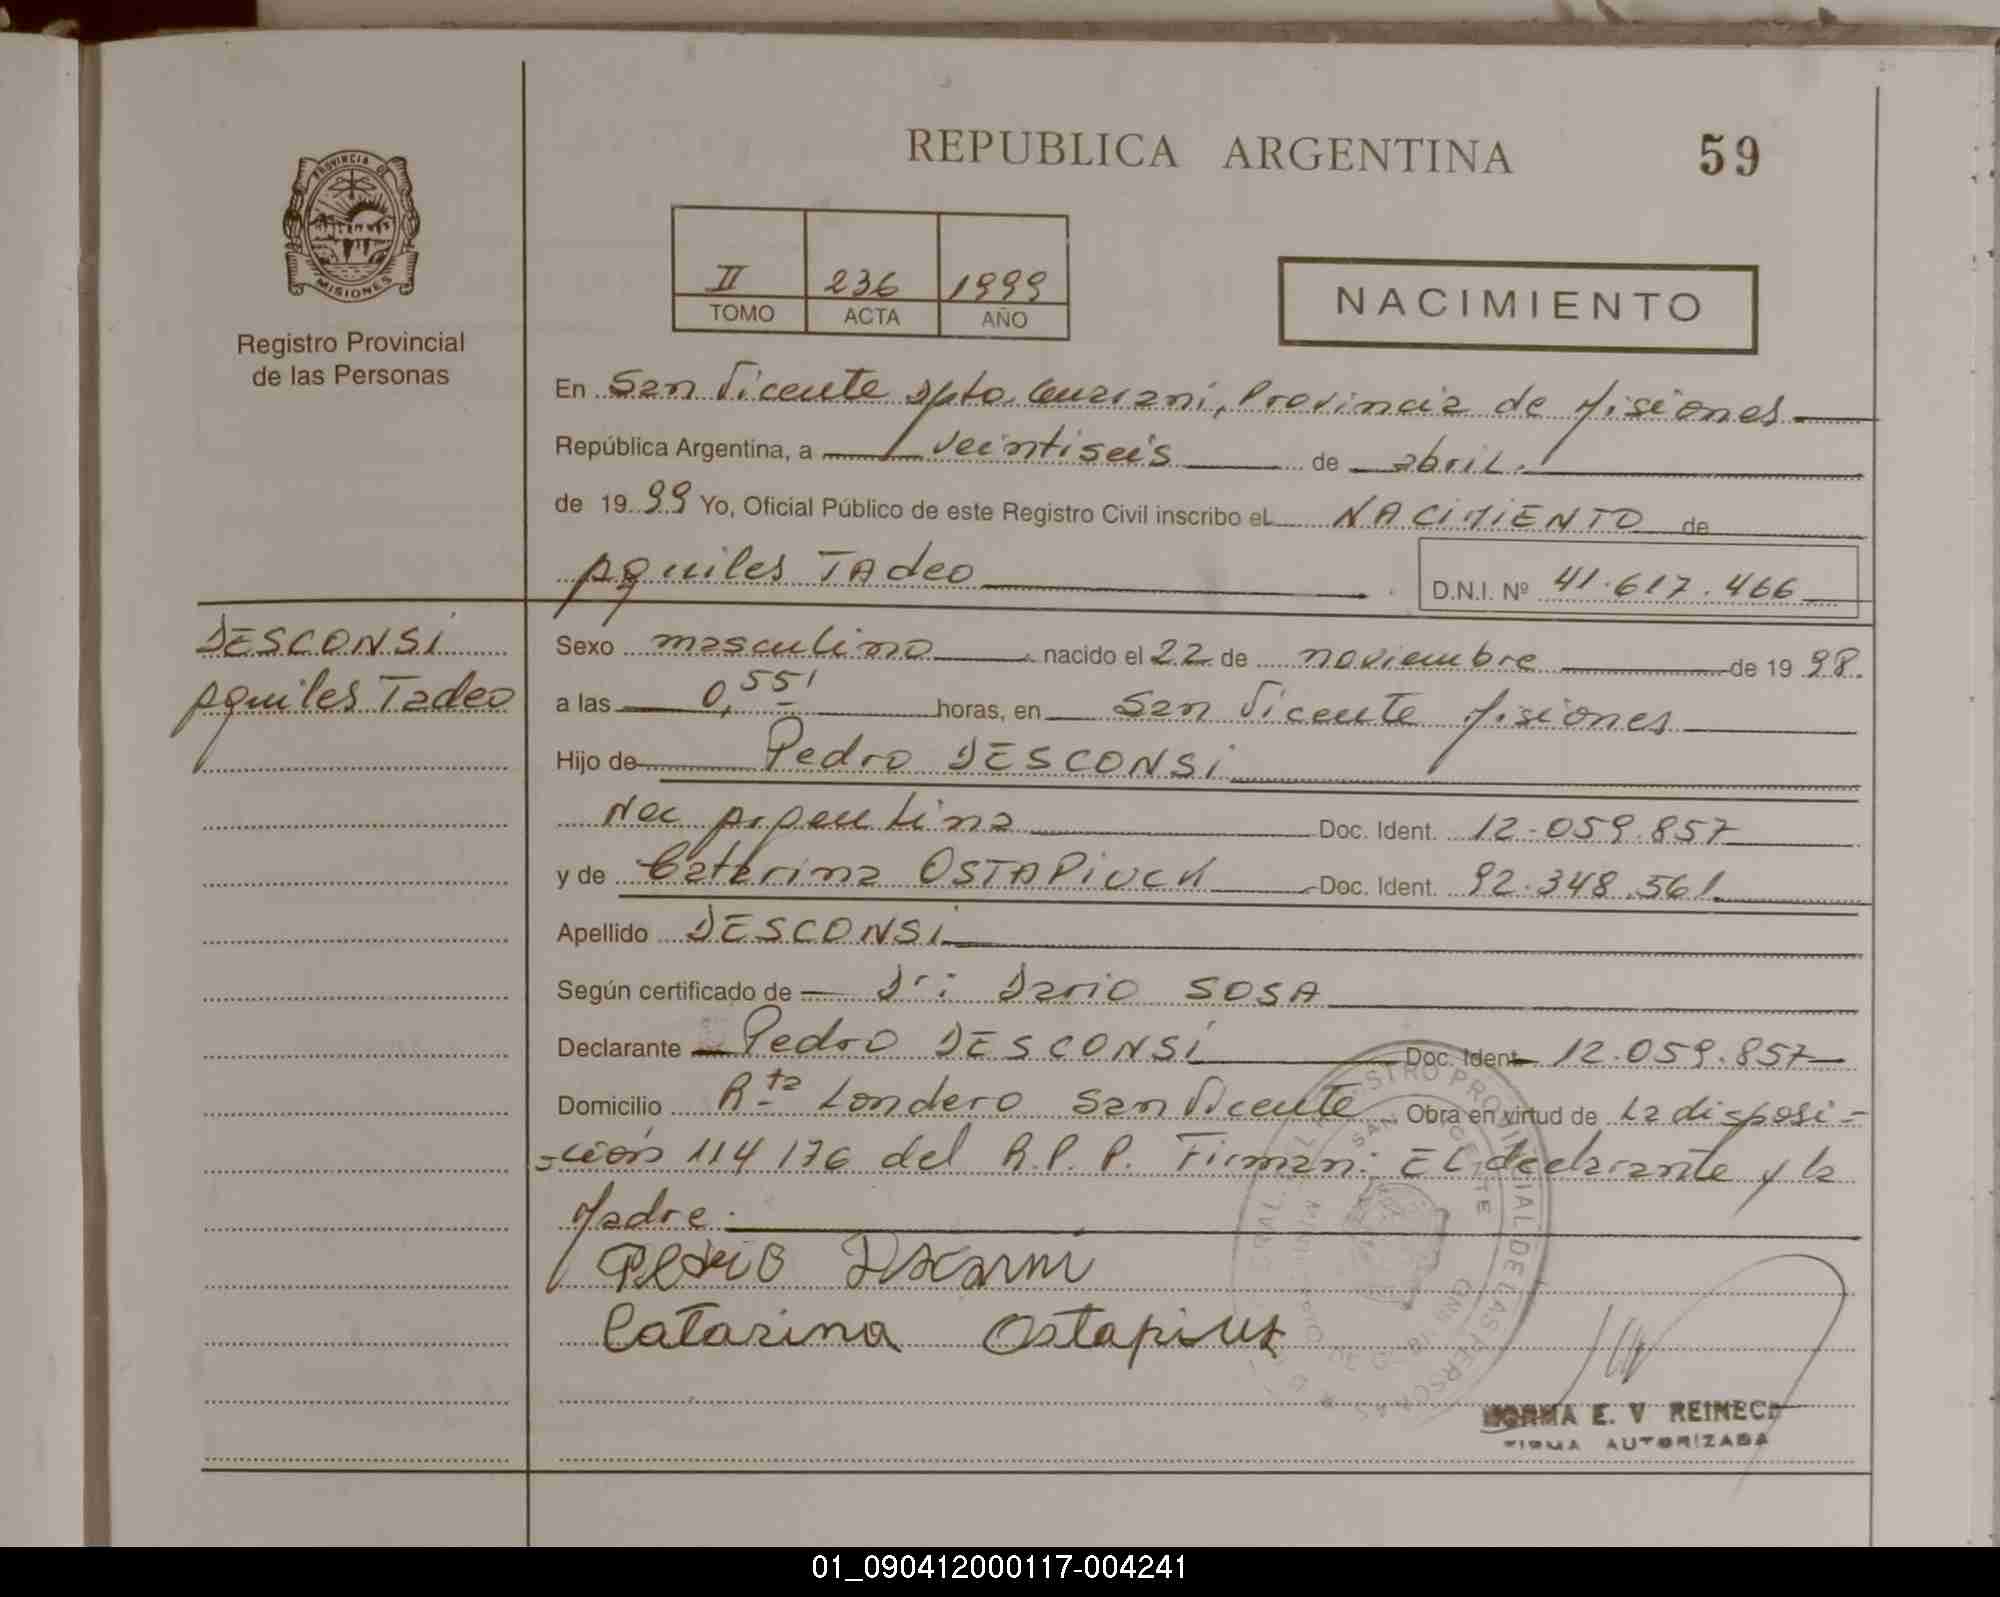 REPUBLICA ARGENTINA
59
PROVINCIA DE
MISIONES
Registro Provincial
de las Personas
II 236 1999
TOMO ACTA AÑO
NACIMIENTO
En San Vicente Dpto. Guaraní, Provincia de Misiones
República Argentina, a veintiseis de abril.
de 1999 Yo, Oficial Público de este Registro Civil inscribo el NACIMIENTO de
Aquiles TAdeo
D.N.I. Nº 41.617.466
DESCONSI
Aquiles Tadeo
Sexo masculino nacido el 22 de noviembre de 1998.
a las 0,55' horas, en San Vicente Misiones
Hijo de Pedro DESCONSI
Nac Argentina Doc. Ident. 12.059.857
y de Catarina OSTAPIUCK Doc. Ident. 92.348.561
Apellido DESCONSI
Según certificado de Dr: Dario SOSA
Declarante Pedro DESCONSI Doc. Ident. 12.059.857
Domicilio Rta Londero San Vicente Obra en virtud de La disposi-
-ción 114/76 del R.P.P. Firman: EL declarante y la
Madre.
Pedro
Catarina Ostapiuk
REGISTRO PROVINCIAL DE LAS PERSONAS
SAN VICENTE
NORMA E. V REINECK
FIRMA AUTORIZADA
01_090412000117-004241